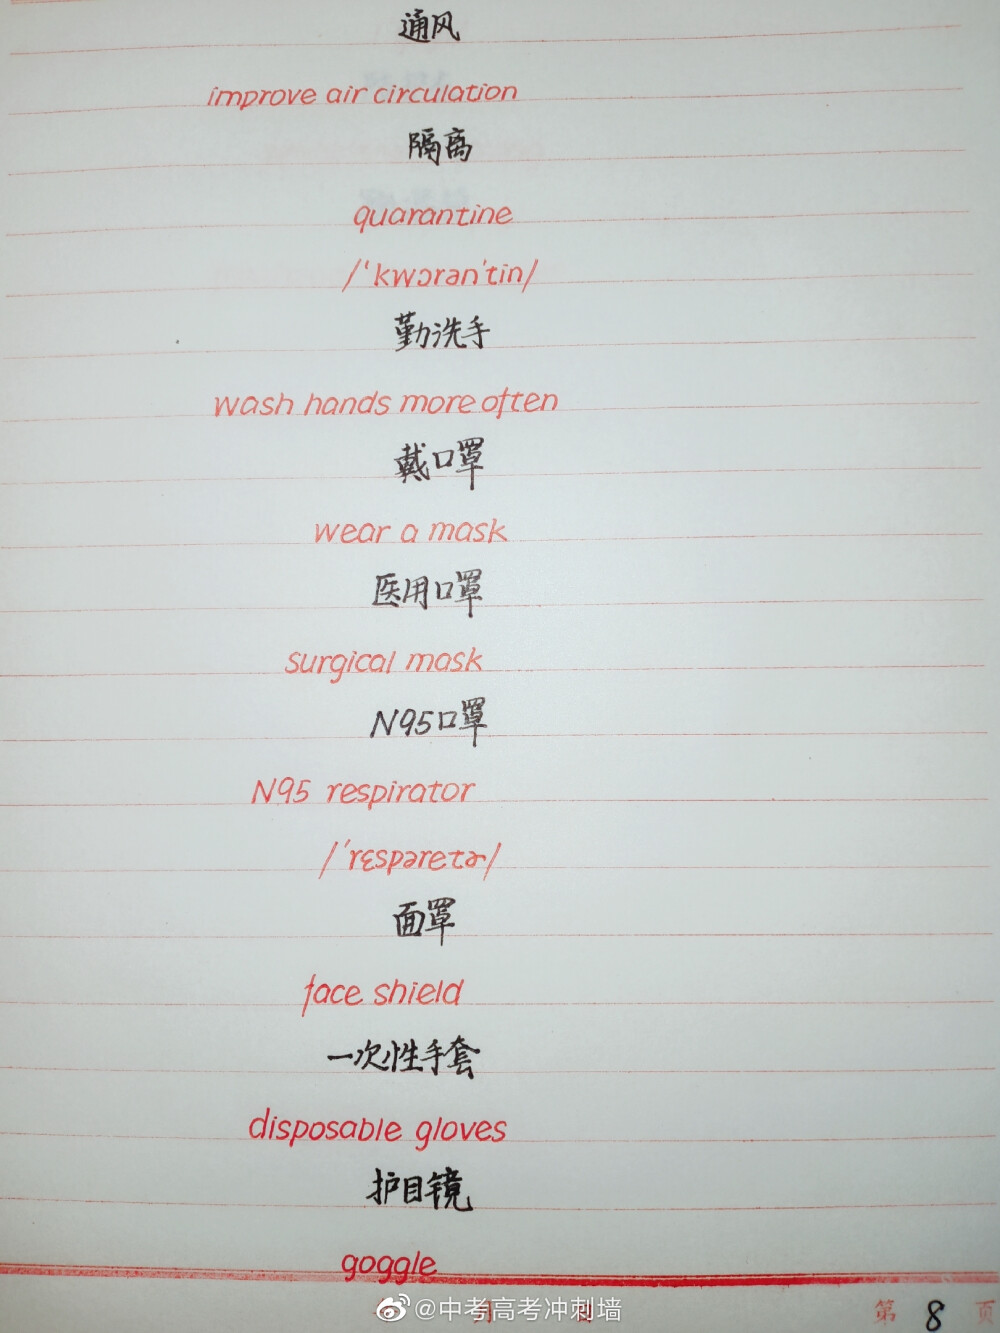 通风
improve air circulation
隔离
quarantine
/'kwɔrən'tin/
勤洗手
wash hands more often
戴口罩
wear a mask
医用口罩
surgical mask
N95口罩
N95 respirator
/'rɛspəretɚ/
面罩
face shield
一次性手套
disposable gloves
护目镜
goggle
@中考高考冲刺墙
月 日
第 8 页